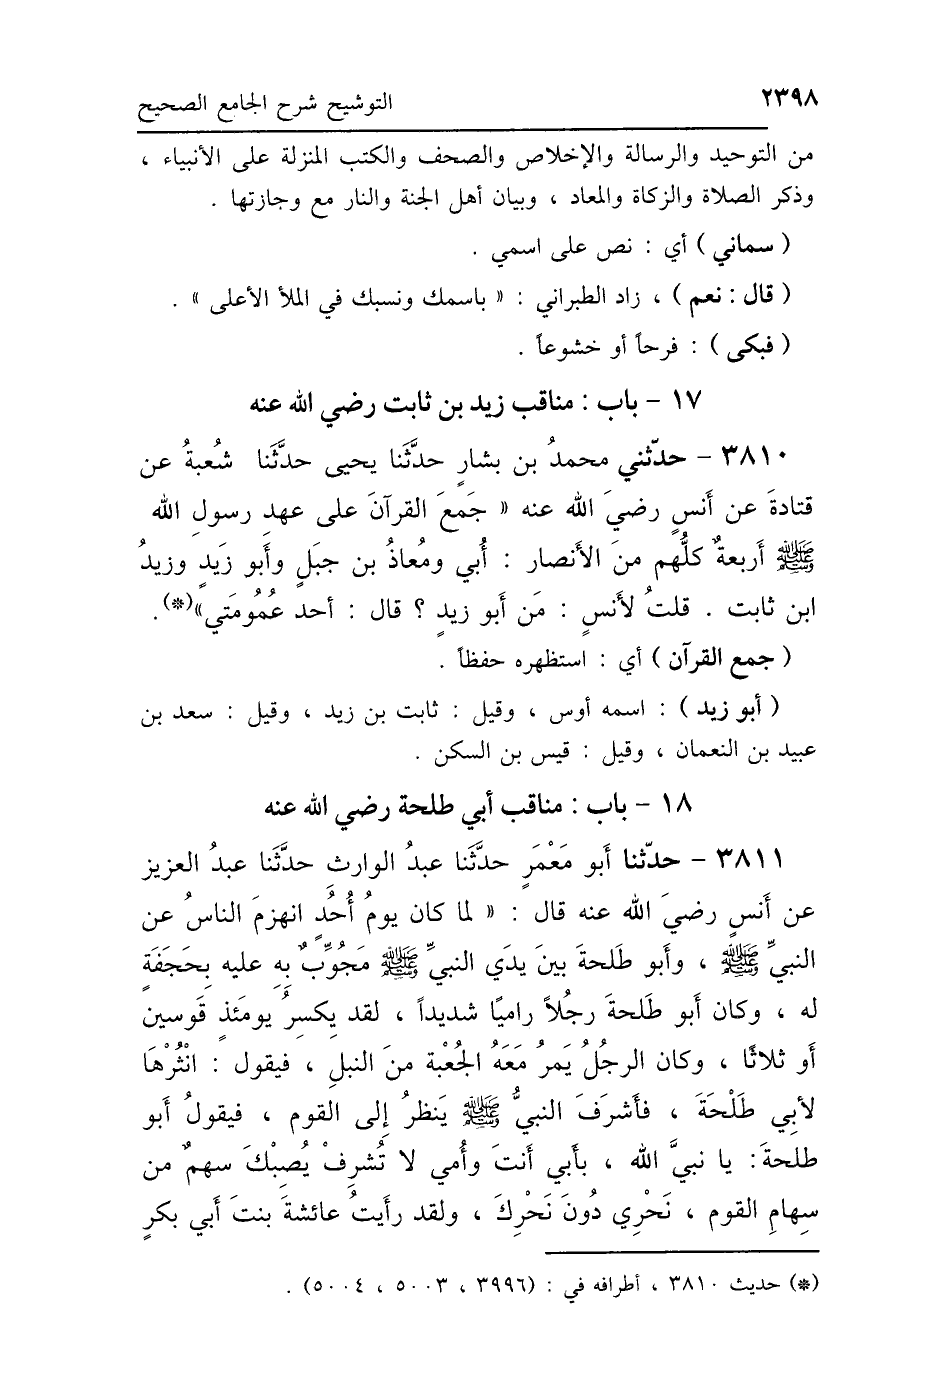 ٢٣٩٨
التوشيح شرح الجامع الصحيح
من التوحيد والرسالة والإخلاص والصحف والكتب المنزلة على الأنبياء ،
وذكر الصلاة والزكاة والمعاد ، وبيان أهل الجنة والنار مع وجازتها .
( سماني ) أي : نص على اسمي .
( قال : نعم ) ، زاد الطبراني : « باسمك ونسبك في الملأ الأعلى » .
( فبكى ) : فرحاً أو خشوعاً .
١٧ - باب : مناقب زيد بن ثابت رضي الله عنه
٣٨١٠ - حدّثني محمدُ بن بشارٍ حدَّثَنا يحيى حدَّثَنا شُعبةُ عن
قتادةَ عن أَنسٍ رضيَ الله عنه « جَمعَ القرآنَ على عهدِ رسولِ الله
ﷺ أَربعةٌ كلُّهم منَ الأنصار : أُبي ومُعاذُ بن جبَلٍ وأَبو زَيدٍ وزيدُ
ابن ثابت . قلتُ لأَنسٍ : مَن أَبو زيدٍ ؟ قال : أحد عُمُومَتي»(*) .
( جمع القرآن ) أي : استظهره حفظاً .
( أبو زيد ) : اسمه أوس ، وقيل : ثابت بن زيد ، وقيل : سعد بن
عبيد بن النعمان ، وقيل : قيس بن السكن .
١٨ - باب : مناقب أبي طلحة رضي الله عنه
٣٨١١ - حدّثنا أَبو مَعْمَرٍ حدَّثَنا عبدُ الوارثِ حدَّثَنا عبدُ العزيز
عن أَنسٍ رضيَ الله عنه قال : « لما كان يومُ أُحُدٍ انهزمَ الناسُ عن
النبيِّ ﷺ ، وأَبو طَلحةَ بينَ يدَي النبيِّ ﷺ مَجُوِّبٌ بِهِ عليه بِحَجَفَةٍ
له ، وكان أَبو طَلحةَ رجُلاً راميًا شديداً ، لقد يكسرُ يومَئذٍ قَوسين
أَو ثلاثًا ، وكان الرجُلُ يَمرُ مَعَهُ الجُعْبة منَ النبلِ ، فيقول : انْثُرْهَا
لأبِي طَلْحَةَ ، فأَشرَفَ النبيُّ ﷺ يَنظرُ إِلى القوم ، فيقولُ أَبو
طلحةَ: يا نبيَّ الله ، بأَبي أنتَ وأُمي لا تُشرِفْ يُصِبْكَ سهمٌ من
سِهامِ القوم ، نَحْرِي دُونَ نَحْرِكَ ، ولقد رأَيتُ عائشةَ بنتَ أَبي بكرٍ
(*) حديث ٣٨١٠ ، أطرافه في : (٣٩٩٦ ، ٥٠٠٣ ، ٥٠٠٤) .